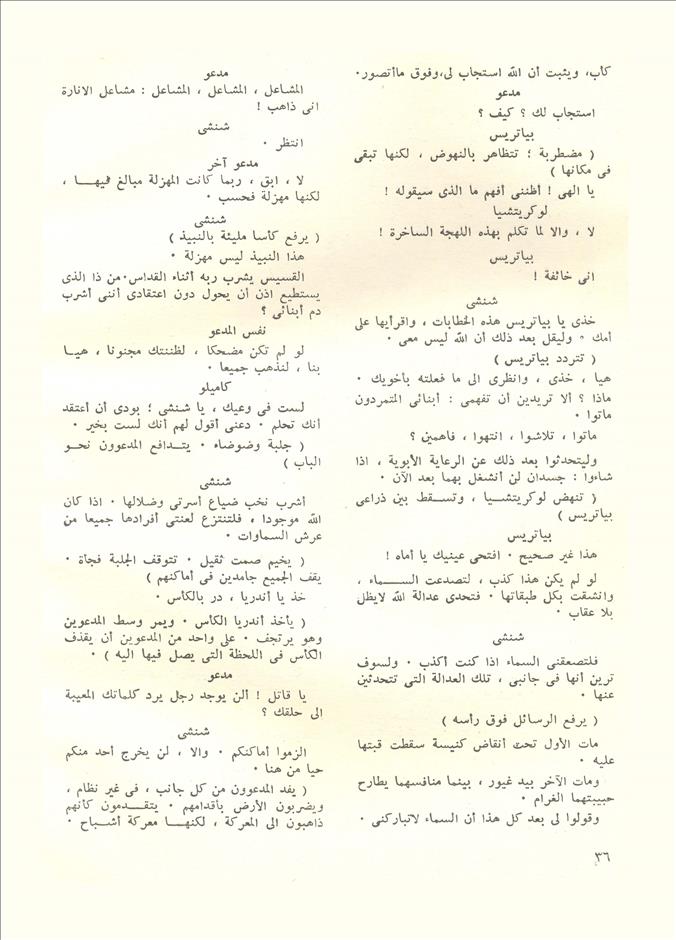 كأب، ويثبت أن الله استجاب لى،وفوق ماأتصور.
مدعو
استجاب لك ؟ كيف ؟
بياتريس
( مضطربة ؛ تتظاهر بالنهوض ، لكنها تبقى
فى مكانها )
يا الهى ! أظننى أفهم ما الذى سيقوله !
لوكريتشيا
لا ، والا لما تكلم بهذه اللهجة الساخرة !
بياتريس
انى خائفة !
شنشى
خذى يا بياتريس هذه الخطابات ، واقرأيها على
أمك . وليقل بعد ذلك أن الله ليس معى .
( تتردد بياتريس )
هيا ، خذى ، وانظرى الى ما فعلته بأخويك .
ماذا ؟ ألا تريدين أن تفهمى : أبنائى المتمردون
ماتوا .
ماتوا ، تلاشوا ، انتهوا ، فاهمين ؟
وليتحدثوا بعد ذلك عن الرعاية الأبوية ، اذا
شاءوا : جسدان لن أنشغل بهما بعد الآن .
( تنهض لوكريتشـــيا ، وتســقط بين ذراعى
بياتريس )
بياتريس
هذا غير صحيح . افتحى عينيك يا أماه !
لو لم يكن هذا كذب ، لتصدعت الســـماء ،
وانشقت بكل طبقاتها . فتحدى عدالة الله لايظل
بلا عقاب .
شنشى
فلتصعقنى السماء اذا كنت أكذب . ولسوف
ترين أنها فى جانبى ، تلك العدالة التى تتحدثين
عنها .
( يرفع الرسائل فوق رأسه )
مات الأول تحت أنقاض كنيسة سقطت قبتها
عليه .
ومات الآخر بيد غيور ، بينما منافسهما يطارح
حبيبتهما الغرام .
وقولوا لى بعد كل هذا أن السماء لاتباركنى .
مدعو
المشاعل ، المشاعل ، المشاعل : مشاعل الانارة
انى ذاهب !
شنشى
انتظر .
مدعو آخر
لا ، ابق ، ربما كانت المهزلة مبالغ فيهــا ،
لكنها مهزلة فحسب .
شنشى
( يرفع كأسا مليئة بالنبيذ )
هذا النبيذ ليس مهزلة .
القسيس يشرب ربه أثناء القداس.من ذا الذى
يستطيع اذن أن يحول دون اعتقادى أننى أشرب
دم أبنائى ؟
نفس المدعو
لو لم تكن مضحكا ، لظننتك مجنونا ، هيــا
بنا ، لنذهب جميعا .
كاميلو
لست فى وعيك ، يا شنشى ؛ بودى أن أعتقد
أنك تحلم . دعنى أقول لهم أنك لست بخير .
( جلبة وضوضاء . يتــدافع المدعوون نحــو
الباب )
شنشى
أشرب نخب ضياع أسرتى وضلالها . اذا كان
الله موجودا ، فلتنتزع لعنتى أفرادها جميعا من
عرش السماوات .
( يخيم صمت ثقيل . تتوقف الجلبة فجأة .
يقف الجميع جامدين فى أماكنهم )
خذ يا أندريا ، در بالكأس .
( يأخذ أندريا الكأس . ويمر وسط المدعوين
وهو يرتجف . على واحد من المدعوين أن يقذف
الكأس فى اللحظة التى يصل فيها اليه ) .
مدعو
يا قاتل ! ألن يوجد رجل يرد كلماتك المعيبة
الى حلقك ؟
شنشى
الزموا أماكنكم . والا ، لن يخرج أحد منكم
حيا من هنا .
( يفد المدعوون من كل جانب ، فى غير نظام ،
ويضربون الأرض بأقدامهم . يتقــدمون كأنهم
ذاهبون الى المعركة ، لكنهــا معركة أشــباح .
٣٦